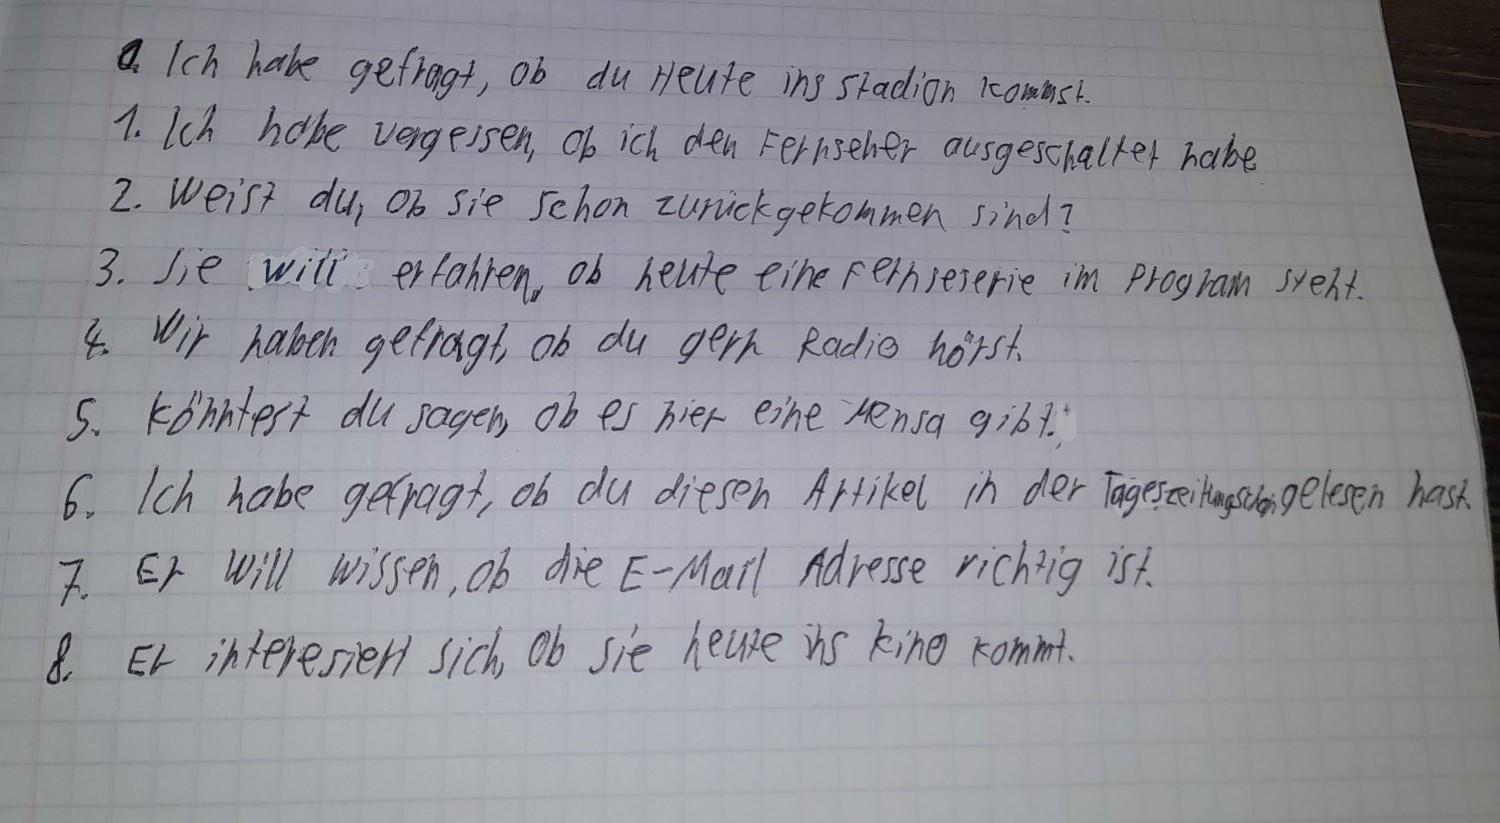 0. Ich habe gefragt, ob du Heute ins Stadion kommst.
1. Ich habe vergessen, ob ich den Fernseher ausgeschaltet habe
2. Weist du, ob sie schon zurückgekommen sind?
3. Sie will erfahren, ob heute eine Fernseserie im Program steht.
4. Wir haben gefragt, ob du gern Radio hörst.
5. Könntest du sagen, ob es hier eine Mensa gibt.
6. Ich habe gefragt, ob du diesen Artikel in der Tageszeitung schon gelesen hast.
7. Er will wissen, ob die E-Mail Adresse richtig ist.
8. Er interesiert sich, ob sie heute ins kino kommt.